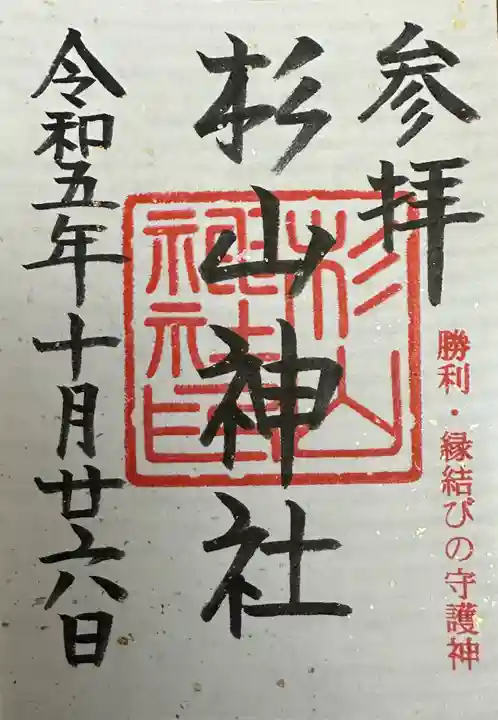 参拝
勝利・縁結びの守護神
杉山神社
令和五年十月廿六日